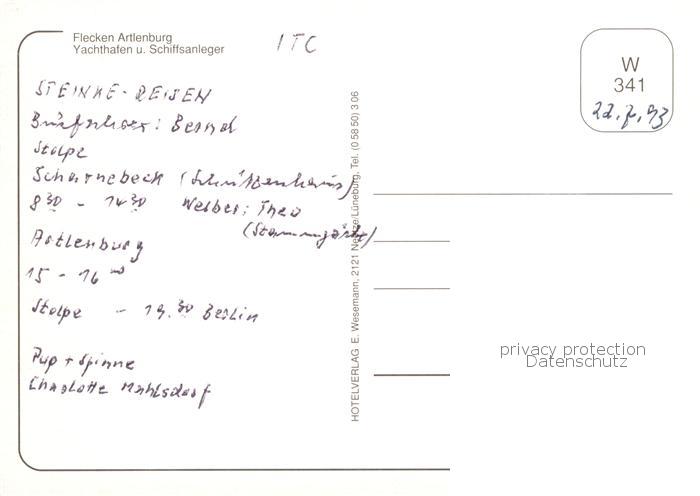 Flecken Artlenburg
Yachthafen u. Schiffsanleger
ITC
W
341
22.7.93
STEINKE-REISEN
Bernd
Stolpe
Scharnebeck (Schützenhaus)
8 30 - 14 30 Werber: Theo
Artlenburg
15 - 16 00
Stolpe - 19.30 Berlin
Pup + Spinne
Charlotte Mahlsdorf
HOTELVERLAG E. Wesemann, 2121 Neetze/Lüneburg, Tel. (0 58 50) 3 06
privacy protection
Datenschutz